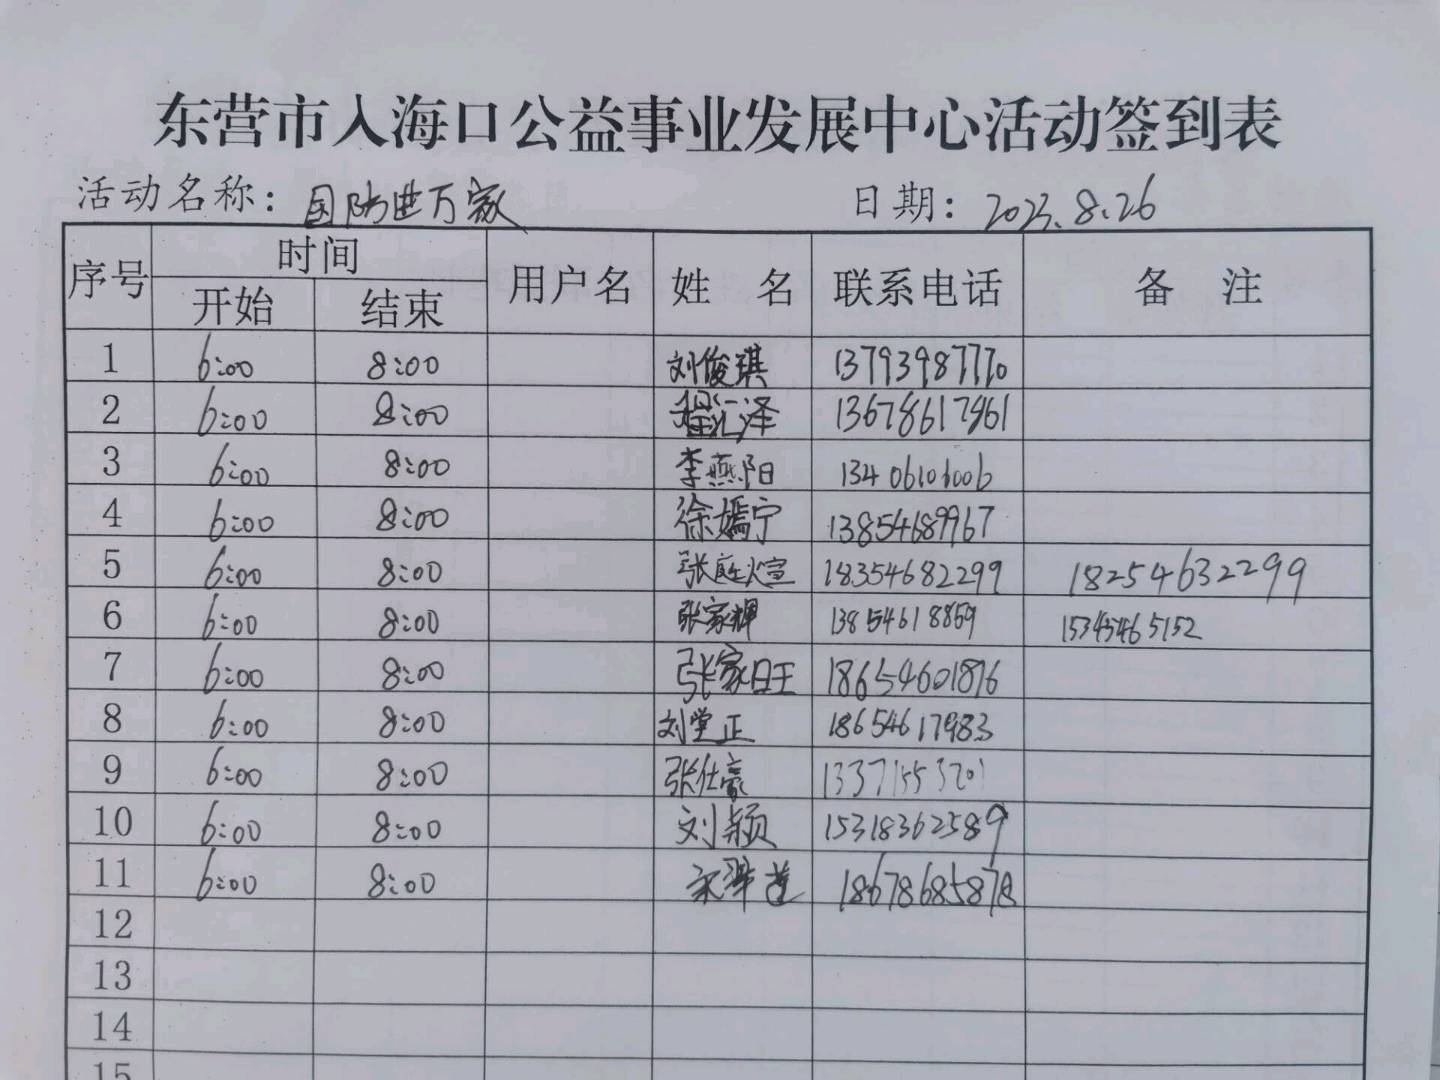 东营市入海口公益事业发展中心活动签到表
活动名称：国防进万家 日期：2023.8.26
序号 时间 用户名 姓 名 联系电话 备 注
开始 结束
1 6:00 8:00 刘俊琪 13793987770
2 6:00 8:00 程汇泽 13678617861
3 6:00 8:00 李燕阳 13406106006
4 6:00 8:00 徐嫣宁 13854689967
5 6:00 8:00 张庭煊 18354682299 18254632299
6 6:00 8:00 张家辉 13854618859 15345465152
7 6:00 8:00 张家旺 18654601876
8 6:00 8:00 刘堂正 18654617983
9 6:00 8:00 张仕豪 13371553701
10 6:00 8:00 刘颖 15318362589
11 6:00 8:00 宋翠莲
12
13
14
15